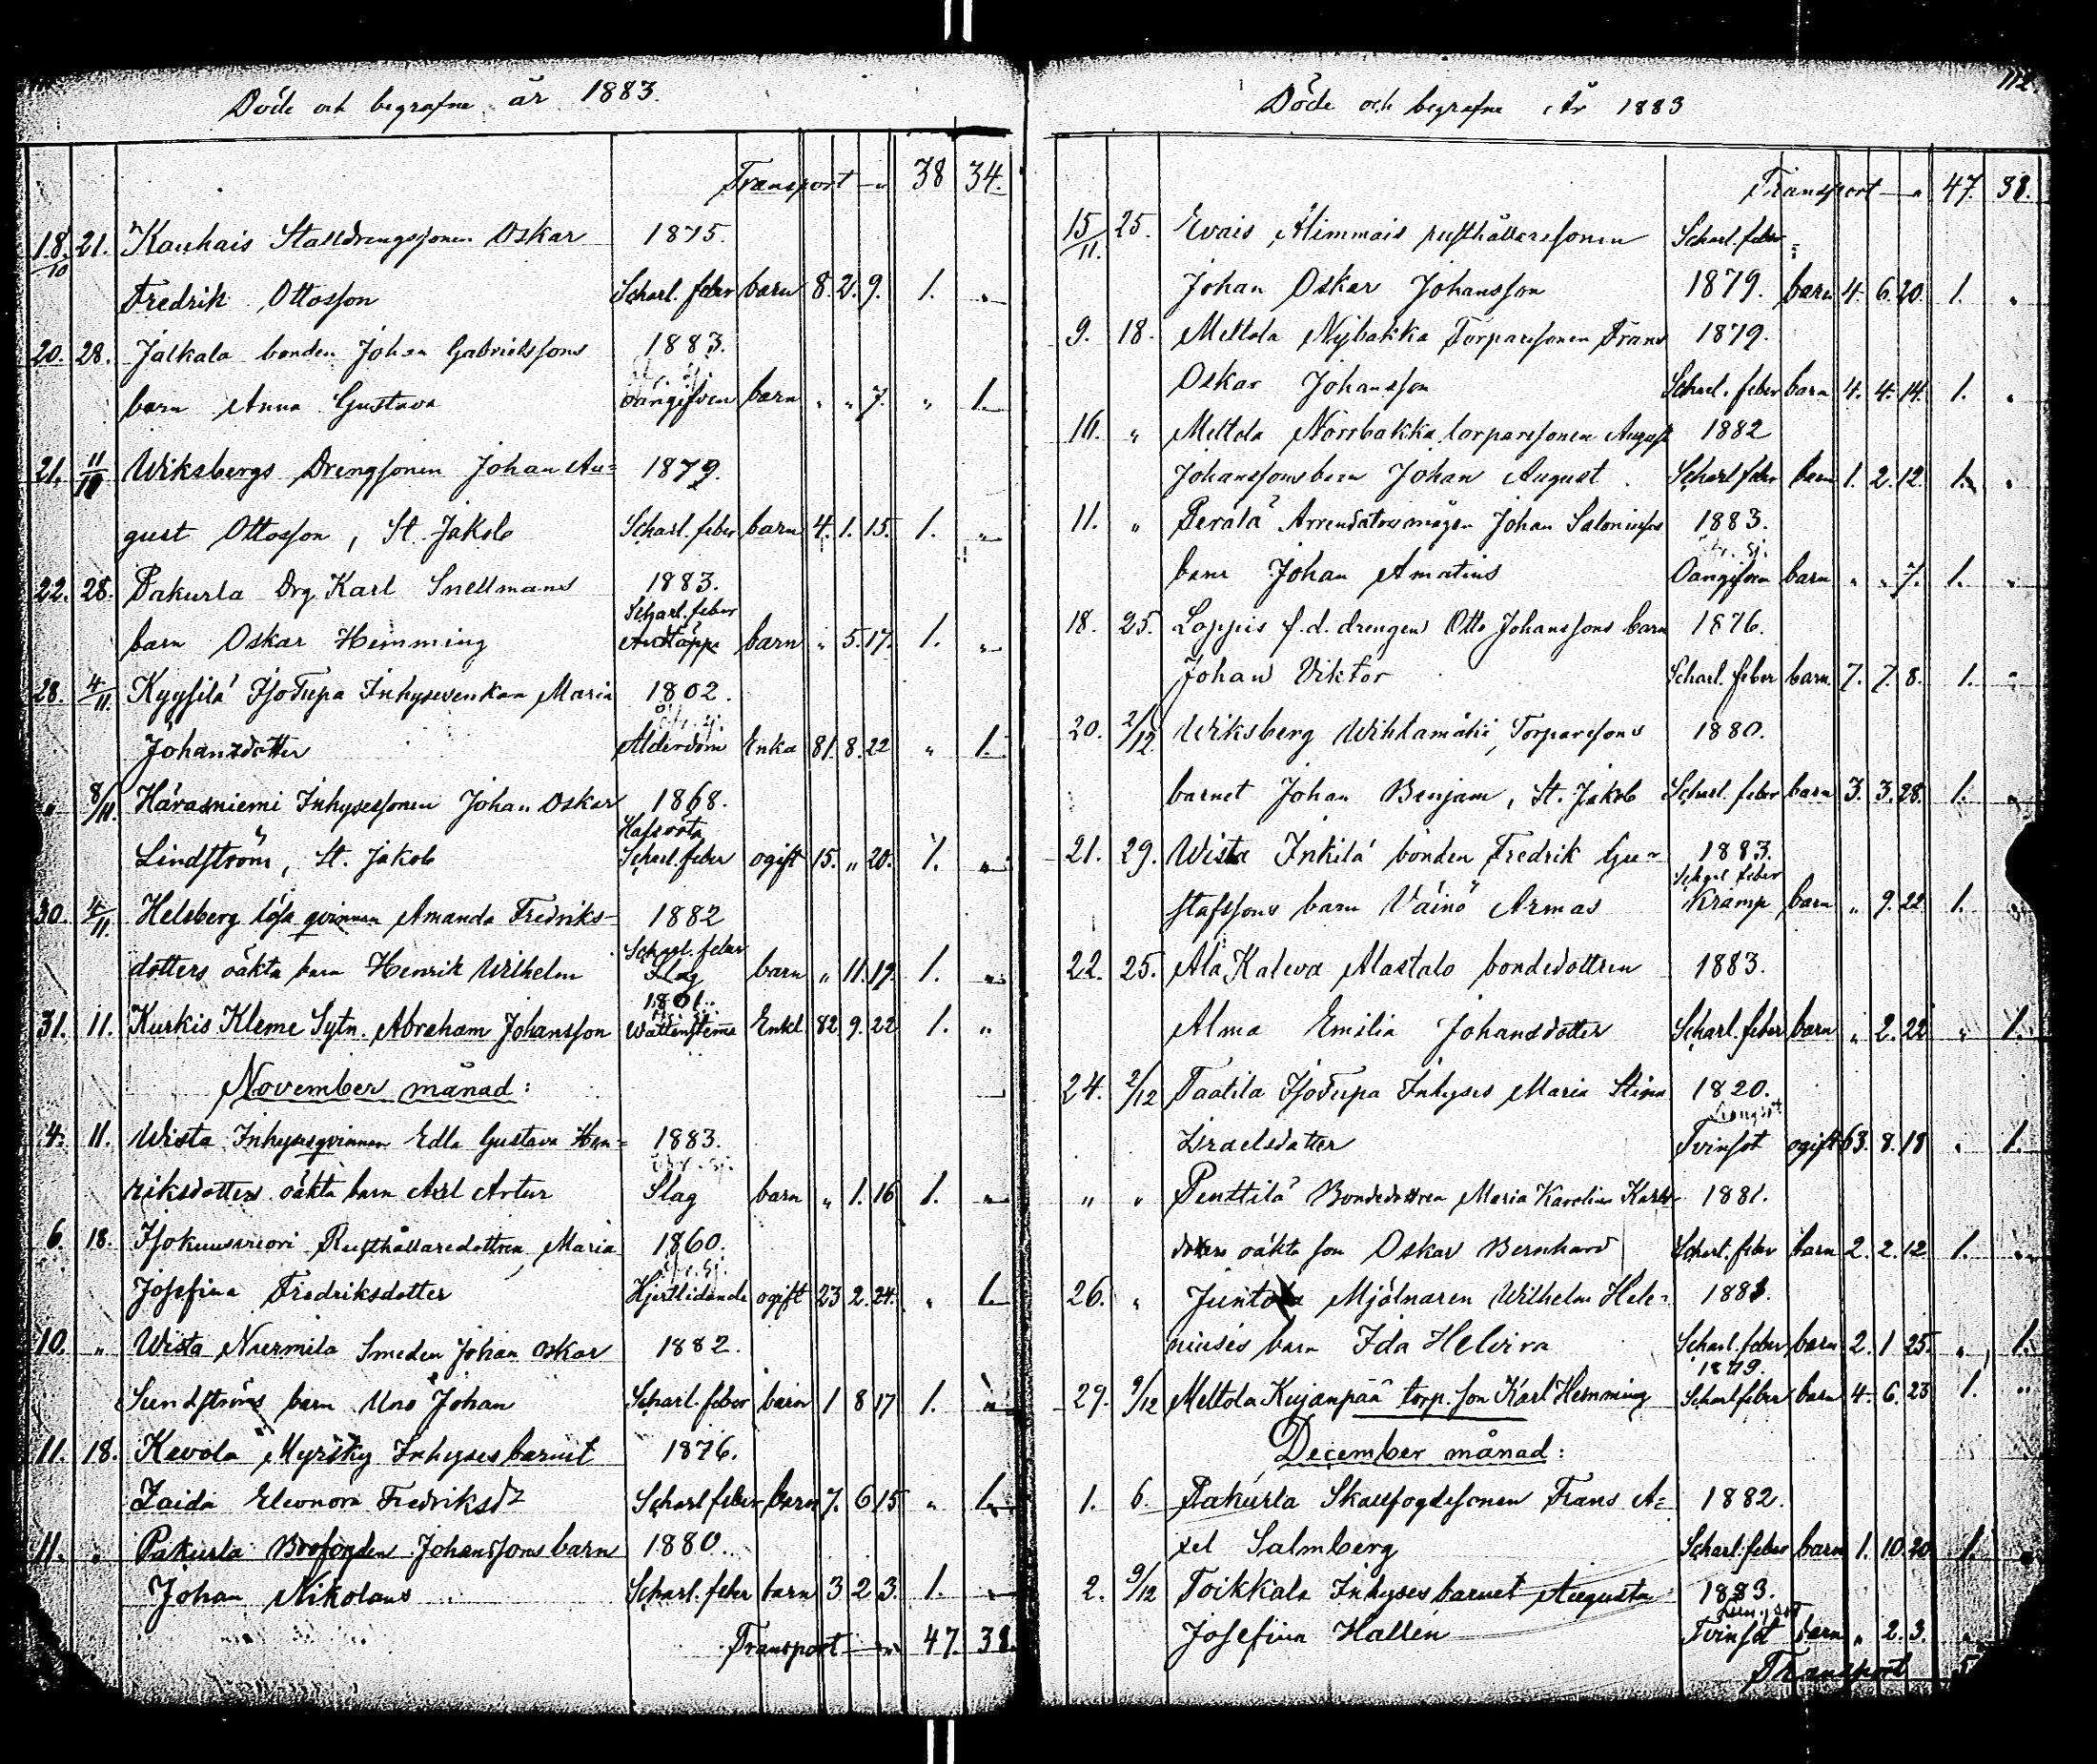 Döde och begrafne år 1883.
Transport — " 38 34.
18/10 21. Kauhais Stalldrengssonen Oskar 1875.
Fredrik Ottosson Scharl. feber barn 8. 2. 9. 1. "
20. 28. Jalkala bonden Johan Gabrielssons 1883.
barn Anna Gustava oangifven barn " " 7. " 1.
21. 11/10 Wiksbergs Drengsonen Johan Au= 1879.
gust Ottosson, St. Jakob Scharl. feber barn 4. 1. 15. 1. "
22. 28. Pakurla Drg Karl Snellmans 1883.
Scharl. feber
barn Oskar Hemming barn " 5. 17. 1. "
28. 4/11. Kyysilä Isotupa Inhysesenkan Maria 1802.
Johansdotter Alderdom Enka 81. 8. 22 " 1.
" 8/11. Härasniemi Inhysessonen Johan Oskar 1868.
Lindström, St. Jakob Scharl. feber ogift 15. " 20. 1. "
30. 4/11. Helsberg lösa qvinnan Amanda Fredriks- 1882
Scharl. feber
dotters oäkta barn Henrik Wilhelm Slag barn " 11. 19. 1. "
1801.
31. 11. Kurkis Kleme Sytn. Abraham Johansson Enkl. 82 9. 22 1. "
November månad:
4. 11. Wista Inhysesqvinnan Edla Gustava Hen= 1883.
riksdotters oäkta barn Axel Artur Slag barn " 1. 16 1. "
6. 18. Rusthållaredottren Maria 1860.
Josefina Fredriksdotter Hjertlidande ogift 23 2. 24. " 1.
10. " Wista Nurmila Smeden Johan Oskar 1882.
Sundströms barn Uno Johan Scharl. feber barn 1 8 17 1. "
11. 18. Kevola Myrsky Inhyses barnet 1876.
Zaida Eleonora Fredriksdr Scharl feber barn 7. 6 15 " 1.
11. " Pakurla Johanssons barn 1880.
Johan Nikolaus Scharl. feber barn 3 2 3. 1. "
Transport — " 47. 38.
112.
Döde och begrafne År 1883
Transport — " 47. 38.
15/11. 25. Evais Alimmais rusthållaresonen Scharl. feber
Johan Oskar Johansson 1879. barn 4. 6. 20. 1. "
9. 18. Meltola Nybakka Torparesonen Frans 1879.
Oskar Johansson Scharl. feber barn 4. 4. 14. 1. "
16. " Meltola Norrbakka torparesonen August 1882
Johanssons barn Johan August Scharl feber barn 1. 2. 12. 1. "
11. " Perälä Arrendatormågen Johan 1883.
barn Johan Amatius Oangifven barn " " 7. 1. "
18. 25. Loppis f.d. drengen Otto Johanssons barn 1876.
Johan Viktor Scharl. feber barn 7. 7. 8. 1. "
20. 2/12. Wiksberg Wihtamäki, Torparesons 1880.
barnet Johan Benjam, St. Jakob Scharl. feber barn 3. 3. 28. 1. "
21. 29. Wista Inkilä bonden Fredrik Gu- 1883.
Scharl feber
stafssons barn Väinö Armas Kramp barn " 9. 22. 1. "
22. 25. Ala Kaleva Alastalo bondedottren 1883.
Alma Emilia Johansdotter Scharl. feber barn " 2. 22 " 1.
24. 2/12 Taatila Isotupa Inhyses Maria Stina 1820.
Lungsot
Israelsdotter Tvinsot ogift 63. 8. 18 " 1.
" " Penttilä Bondedottren Maria Karolina Karls- 1881.
dotters oäkta son Oskar Bernhard Scharl. feber barn 2. 2. 12 1. "
26. " Juntola Mjölnaren Wilhelm Hele= 1881.
niuses barn Ida Helvira Scharl. feber barn 2. 1 25. " 1.
1879.
29. 9/12 Meltola Kujanpää torp. son Karl Hemming Scharl feber barn 4. 6. 23 1. "
December månad:
1. 6. Pakurla Skallfogdesonen Frans A= 1882.
xel Salmberg Scharl. feber barn 1. 10. 20 1. "
2. 9/12 Toikkala Inhyses barnet Augusta 1883.
Lungsot
Josefina Hallén Tvinsot barn " 2. 3. "
Transport